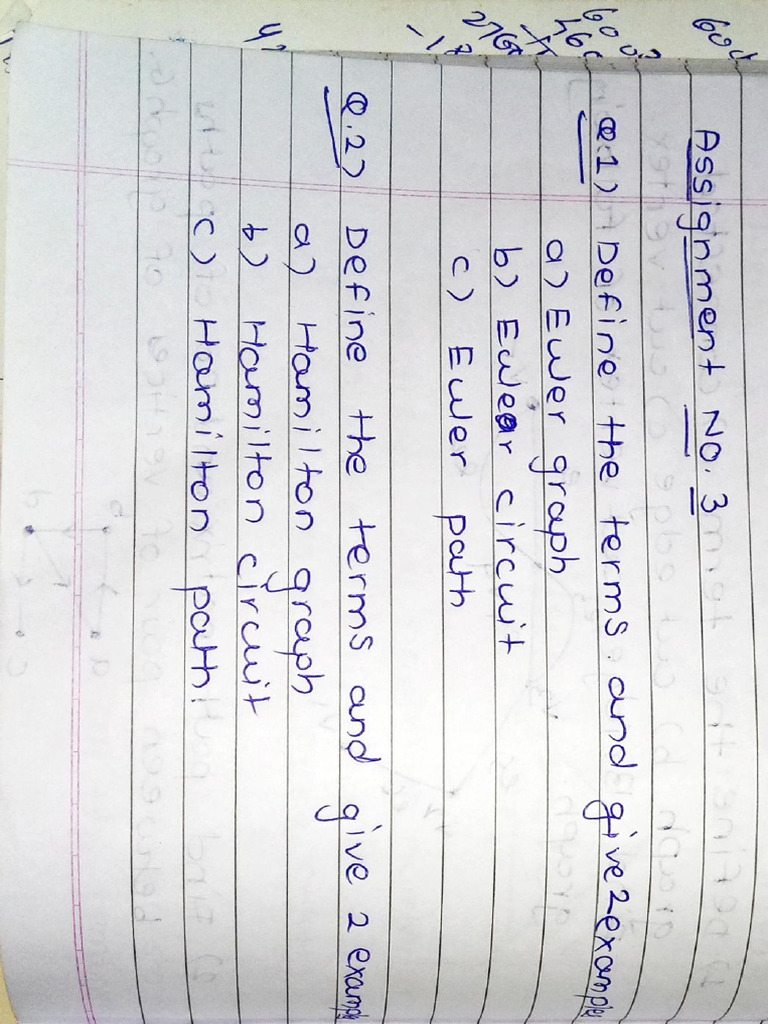 Assignment No. 3
Q.1) Define the terms and give 2 example
a) Euler graph
b) Euler circuit
c) Euler path
Q.2) Define the terms and give 2 example
a) Hamilton graph
b) Hamilton circuit
c) Hamilton path.